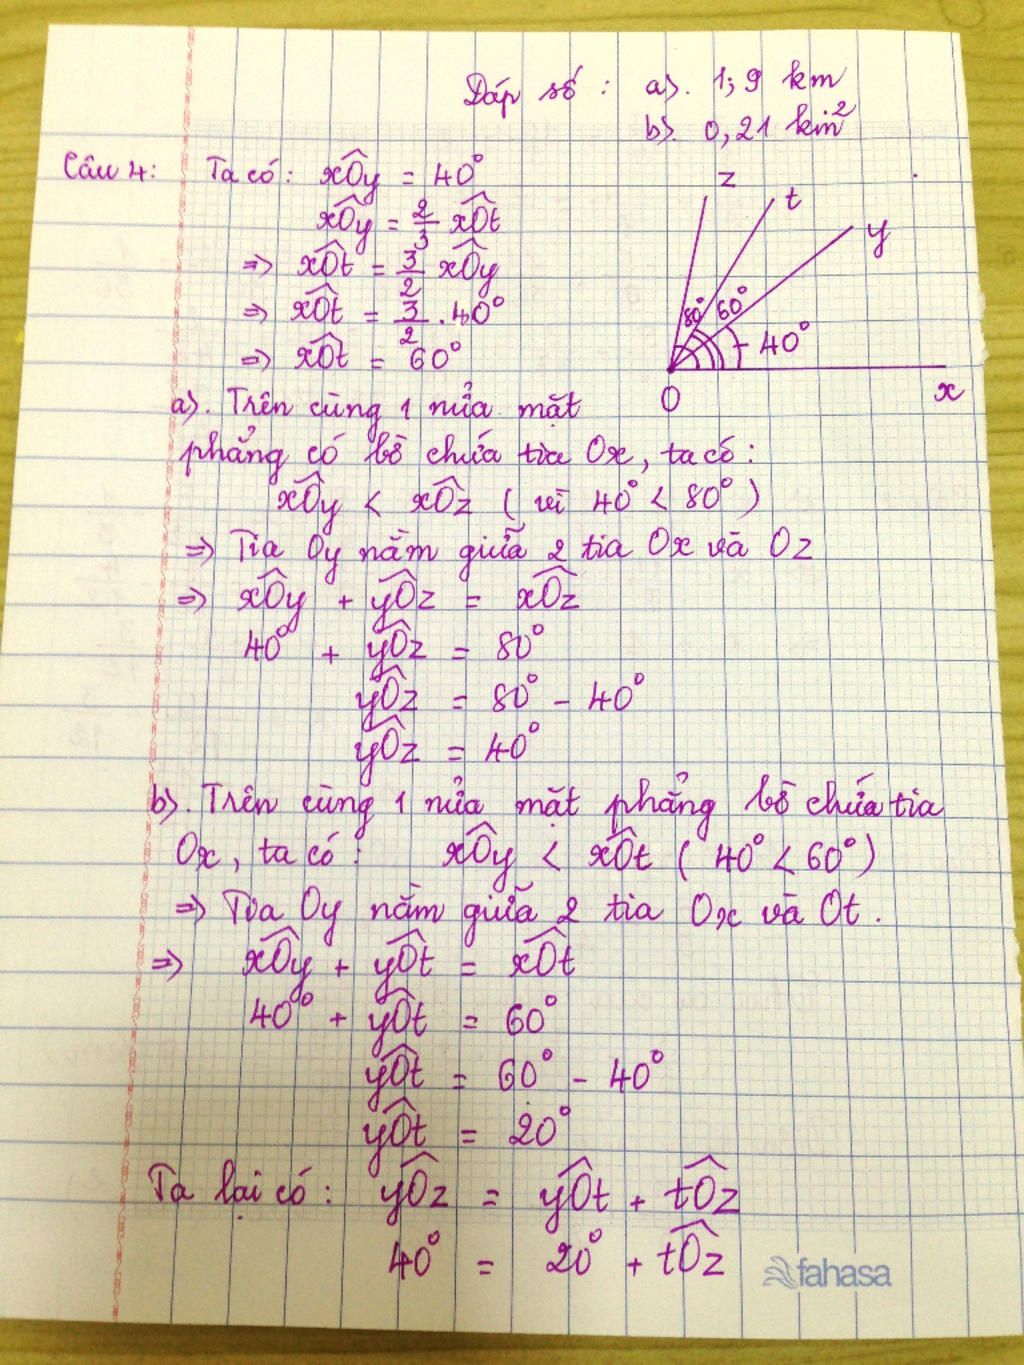 Đáp số : a). 1,9 km
b). 0,21 km²
Câu 4: Ta có: xÔy = 40°
xÔy = 2/3 xÔt
=> xÔt = 3/2 xÔy
=> xÔt = 3/2 . 40°
=> xÔt = 60°
z
t
y
80° 60°
40°
O
x
a). Trên cùng 1 nửa mặt
phẳng có bờ chứa tia Ox, ta có:
xÔy < xÔz ( vì 40° < 80° )
=> Tia Oy nằm giữa 2 tia Ox và Oz
=> xÔy + yÔz = xÔz
40° + yÔz = 80°
yÔz = 80° - 40°
yÔz = 40°
b). Trên cùng 1 nửa mặt phẳng bờ chứa tia
Ox, ta có: xÔy < xÔt ( 40° < 60° )
=> Tia Oy nằm giữa 2 tia Ox và Ot.
=> xÔy + yÔt = xÔt
40° + yÔt = 60°
yÔt = 60° - 40°
yÔt = 20°
Ta lại có: yÔz = yÔt + tÔz
40° = 20° + tÔz
fahasa